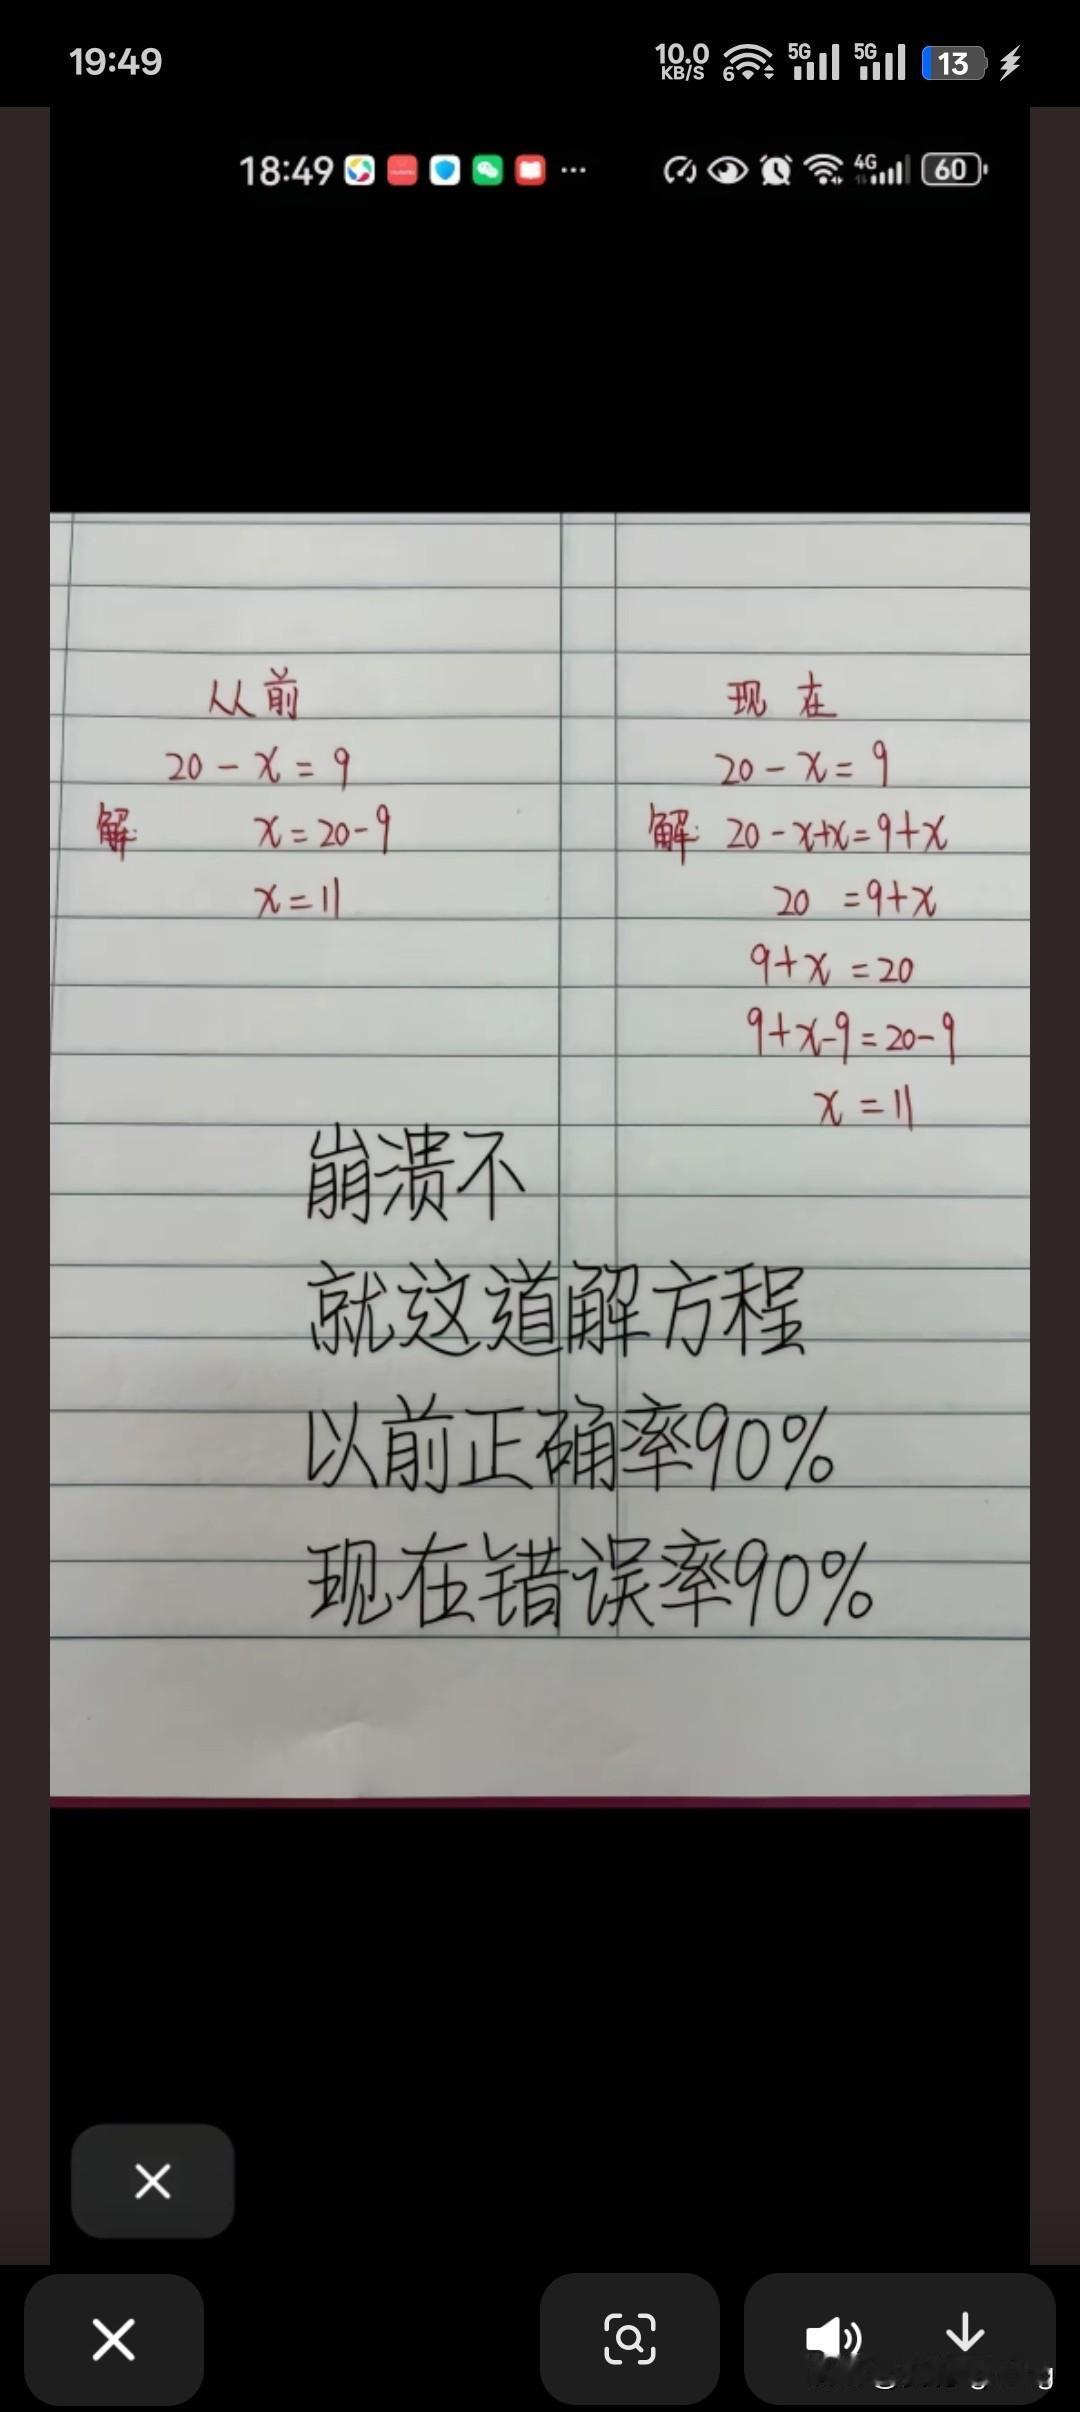 19:49
10.0 KB/S 6 5G 5G 13
18:49 ··· 4G 60
从前
20-x=9
解: x=20-9
x=11
现在
20-x=9
解: 20-x+x=9+x
20 =9+x
9+x =20
9+x-9=20-9
x =11
崩溃不
就这道解方程
以前正确率90%
现在错误率90%